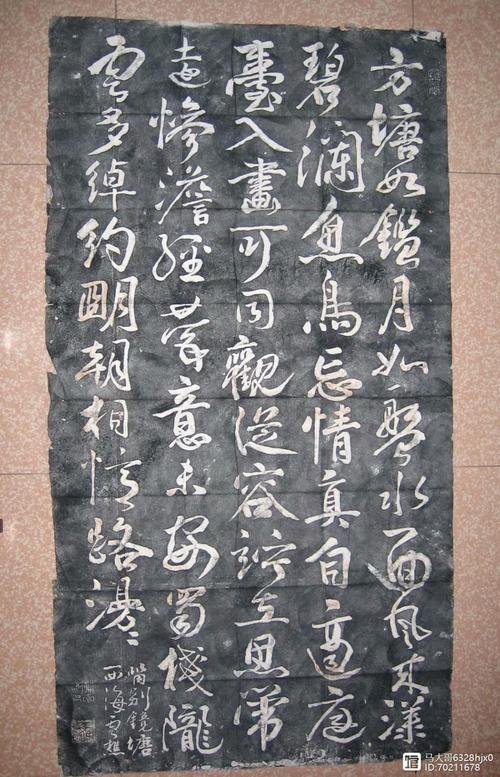 方塘如鑑月如盤水面風來漾
碧瀾魚鳥忘情真自適庭
臺入畫可同觀從容竚立思常
遠慘澹經營意未安蜀棧隴
雲多綽約明朝相憶路漫〻
留別鏡塘
西海雪樵
马大哥6328hjx0
ID:70211678